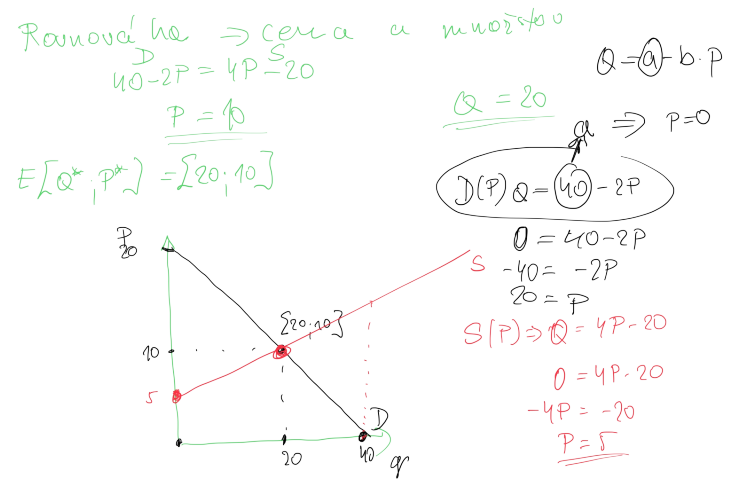 Rovnováha ⇒ cena a množstvo
D S
40-2P = 4P-20
P = 10
Q = 20
E[Q*; P*] = [20; 10]
Q = a - b·P
a ⇒ P=0
D(P) Q = 40 - 2P
0 = 40-2P
-40 = -2P
20 = P
S(P) ⇒ Q = 4P-20
0 = 4P-20
-4P = -20
P = 5
P
20
S
[20;10]
10
5
D
20
40
q